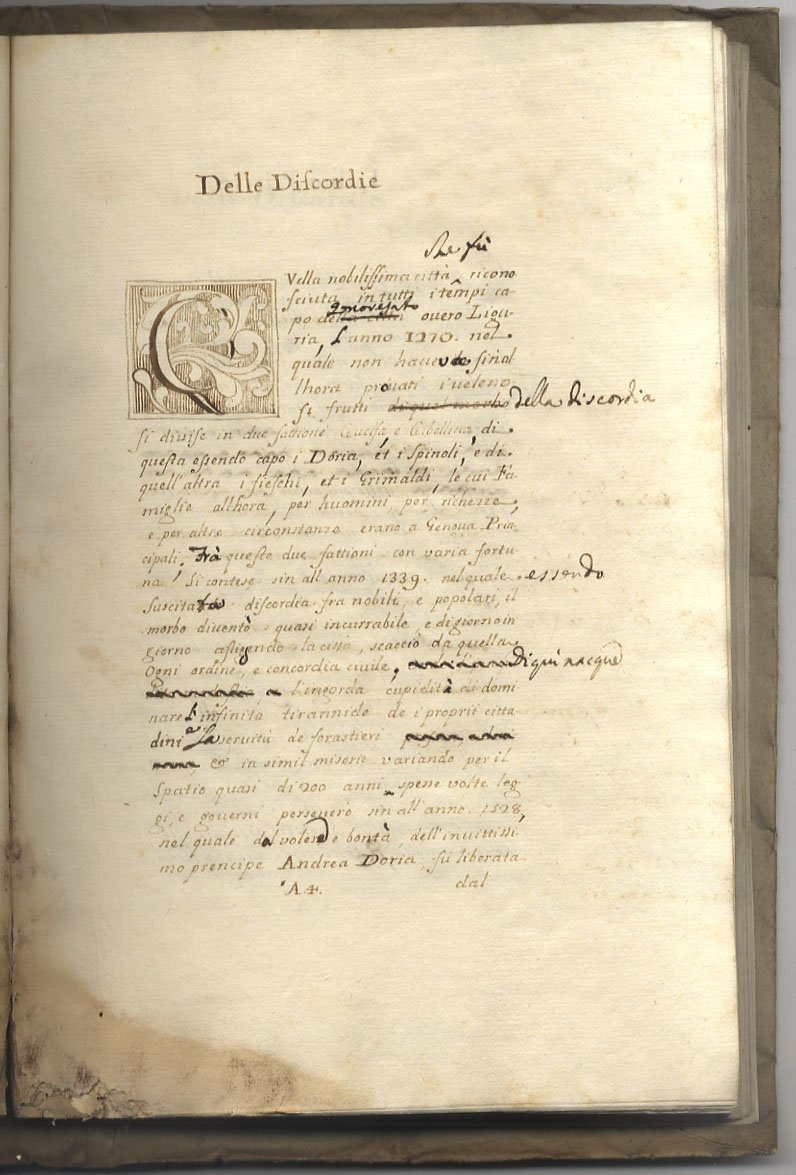 Delle Discordie
che fù
QVella nobilissima città, ricono
sciuta in tutti i tempi ca
genovesato
po della città overo Ligu-
ria, l'anno 1270. nel
quale non haveva sin al
lhora provati i veleno
si frutti di quel morbo della discordia
si divise in due fattione Guelfa, e Gibellina, di
questa essendo capo i Doria, et i Spinoli, e di
quell'altra i fieschi, et i Grimaldi, le cui Fa
miglie allhora, per huomini, per richezze,
e per altre circonstanze erano a Genova Prin
cipali. Frà queste due fattioni con varia fortu
na, si contese sin all anno 1339. nel quale essendo
suscitata discordia fra nobili, e popolari, il
morbo diventò quasi incurrabile, e di giorno in
giorno afligendo la città, scacciò da quella
Ogni ordine, e concordia civile, di qui nacque
l'ingorda cupidità di domi
nare l'infinita tirannide de i proprii citta
dini e la servitù de forastieri
& in simil miserie variando per il
Spatio quasi di 200 anni spesse volte leg
gi, e governi perseverò sin all'anno. 1528,
nel quale dal volere e bontà, dell'invittissi
mo prencipe Andrea Doria, fù liberata
A4. dal